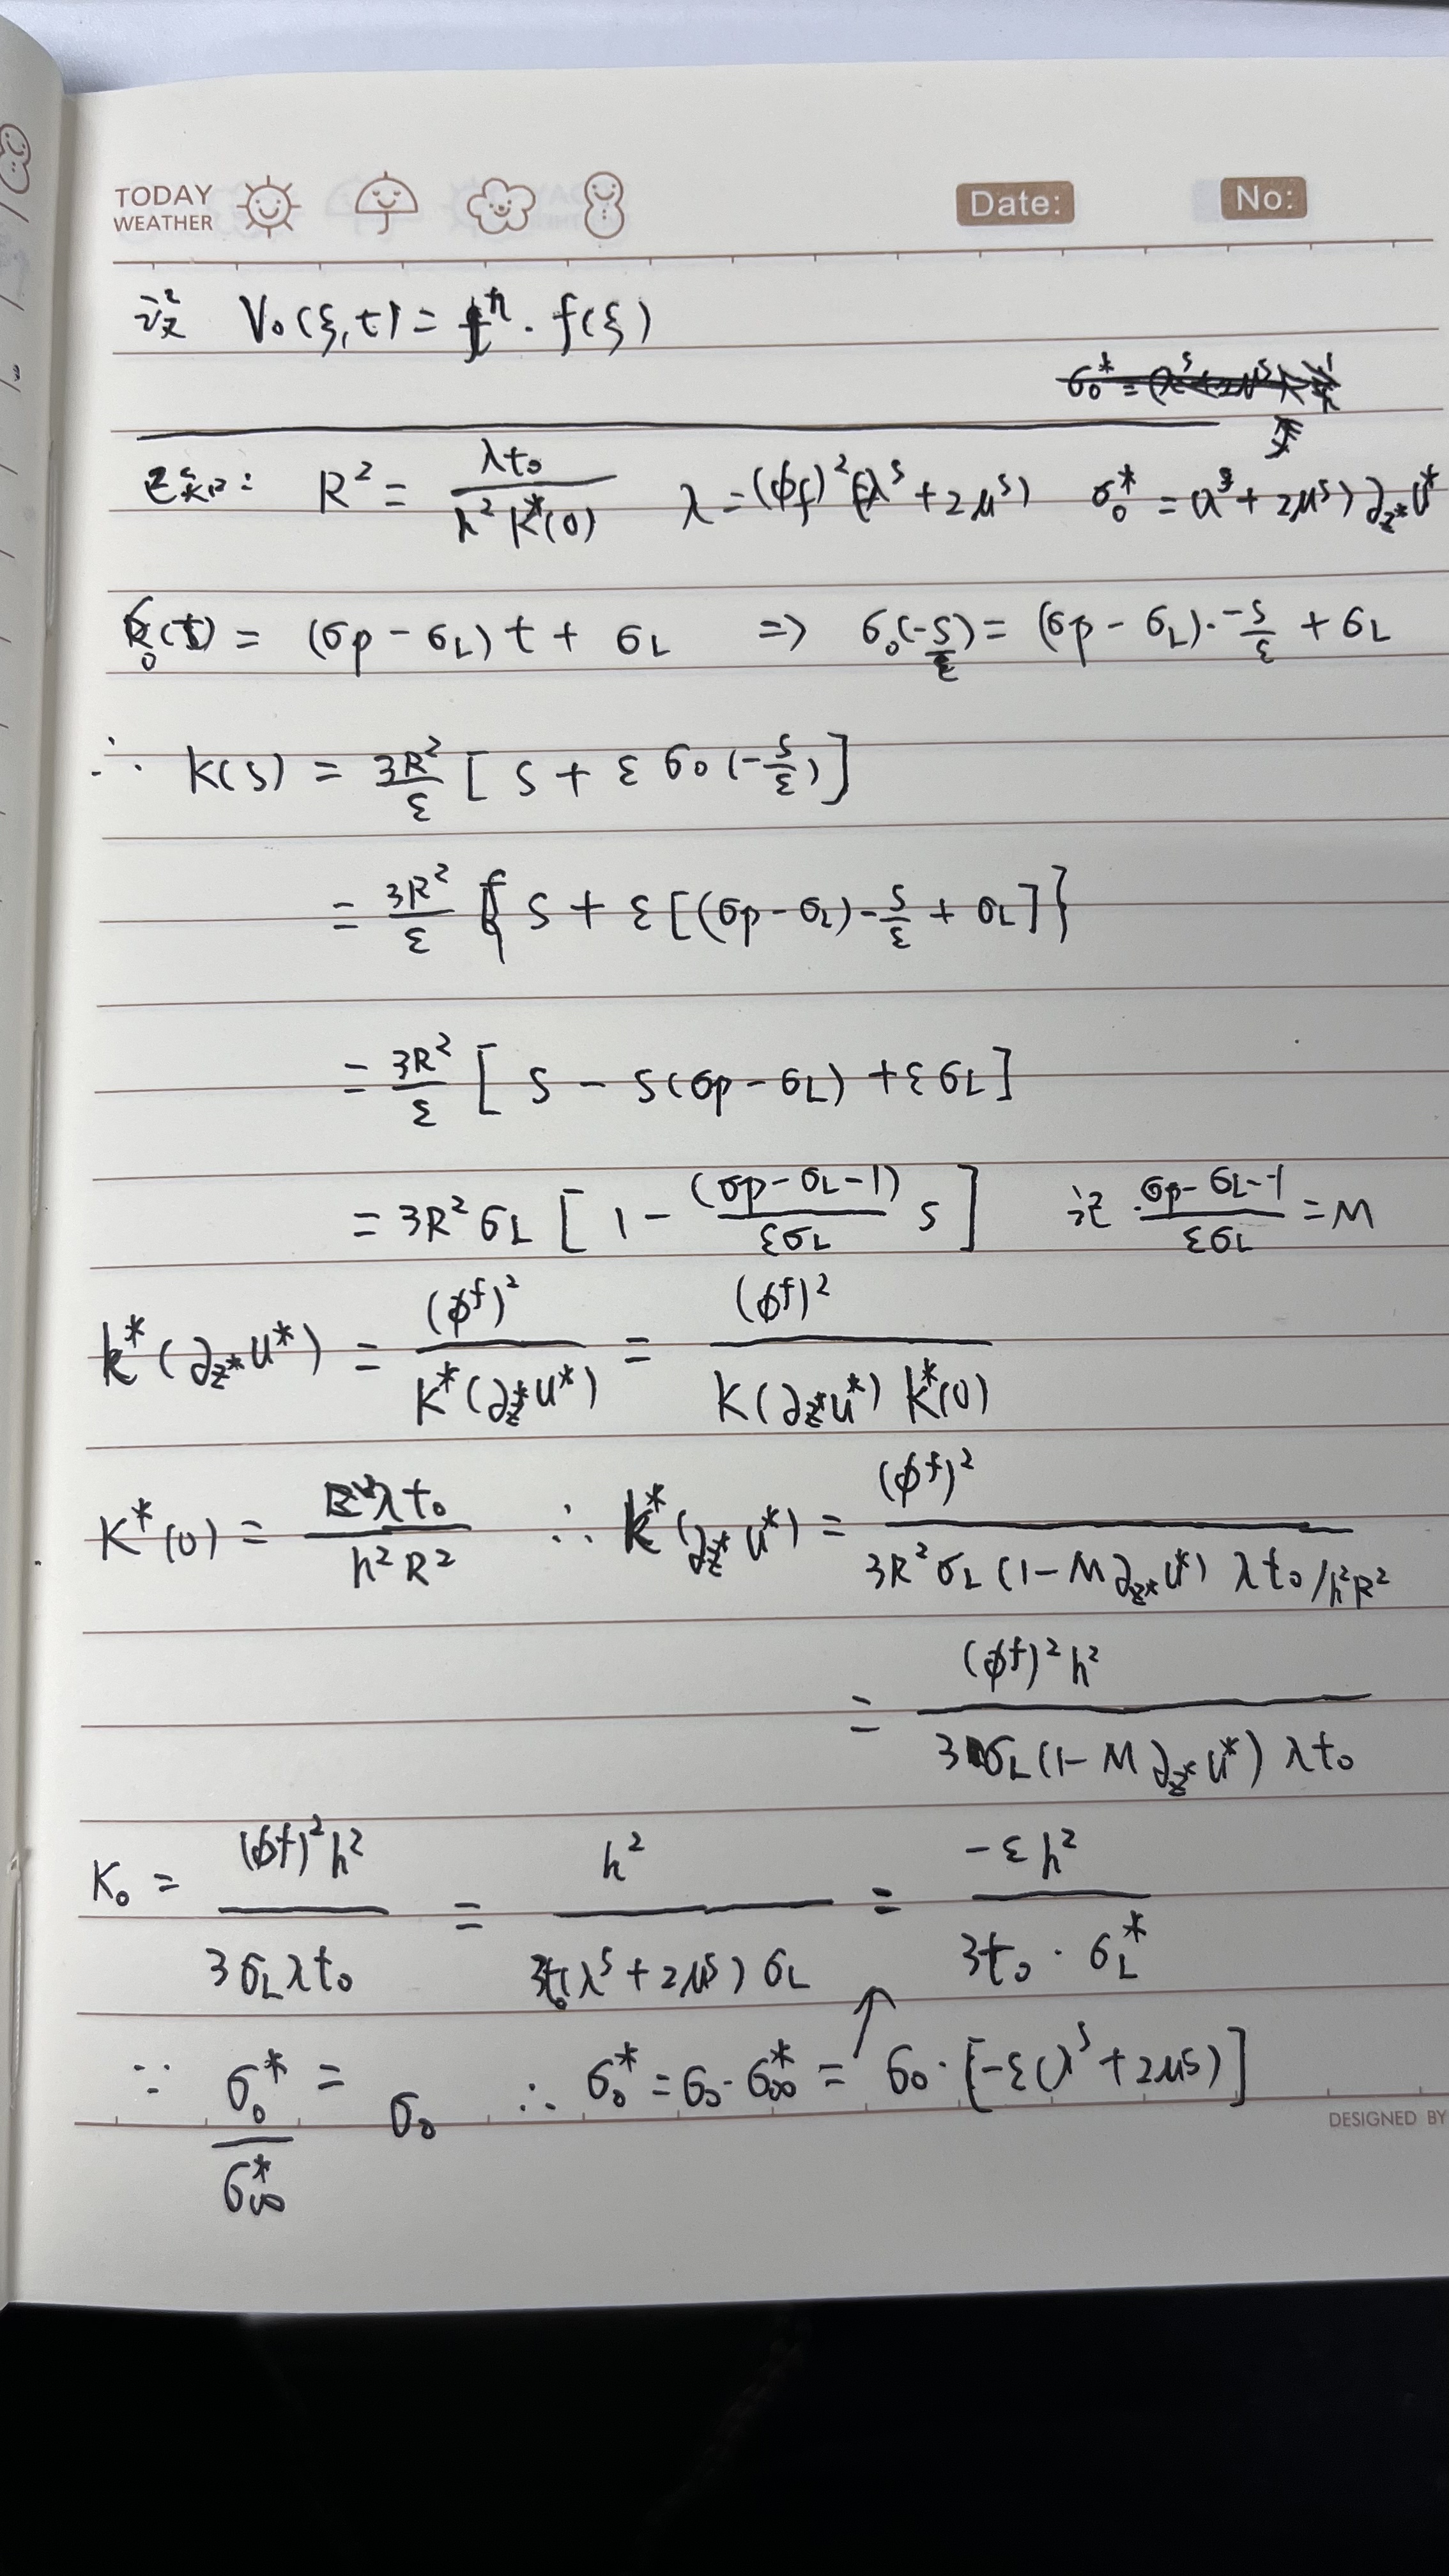 TODAY WEATHER Date: No:
设 V₀(ξ,t) = tⁿ · f(ξ)
已知: R² = λt₀ / h²K*(0) λ = (ϕf)²(λˢ + 2μˢ) σ₀* = (λˢ + 2μˢ) ∂z*u*
σ₀(t) = (σp - σL) t + σL => σ₀(-s/ε) = (σp - σL)·-s/ε + σL
∴ K(s) = 3R²/ε [ s + ε σ₀(-s/ε) ]
= 3R²/ε { s + ε [(σp - σL) -s/ε + σL] }
= 3R²/ε [ s - s(σp - σL) + εσL ]
= 3R²σL [ 1 - (σp - σL - 1)/εσL s ] 记 σp - σL - 1/εσL = M
k*(∂z*u*) = (ϕᶠ)² / K*(∂z*u*) = (ϕᶠ)² / K(∂z*u*) K*(0)
K*(0) = λt₀ / h²R² ∴ k*(∂z*u*) = (ϕᶠ)² / 3R²σL (1 - M∂z*u*) λt₀/h²R²
= (ϕᶠ)²h² / 3σL(1 - M∂z*u*) λt₀
K₀ = (ϕf)²h² / 3σLλt₀ = h² / 3t₀(λˢ + 2μˢ) σL = -εh² / 3t₀ · σL*
∵ σ₀*/σ∞* = σ₀ ∴ σ₀* = σ₀ · σ∞* = σ₀ · [-ε(λˢ + 2μs)]
DESIGNED BY